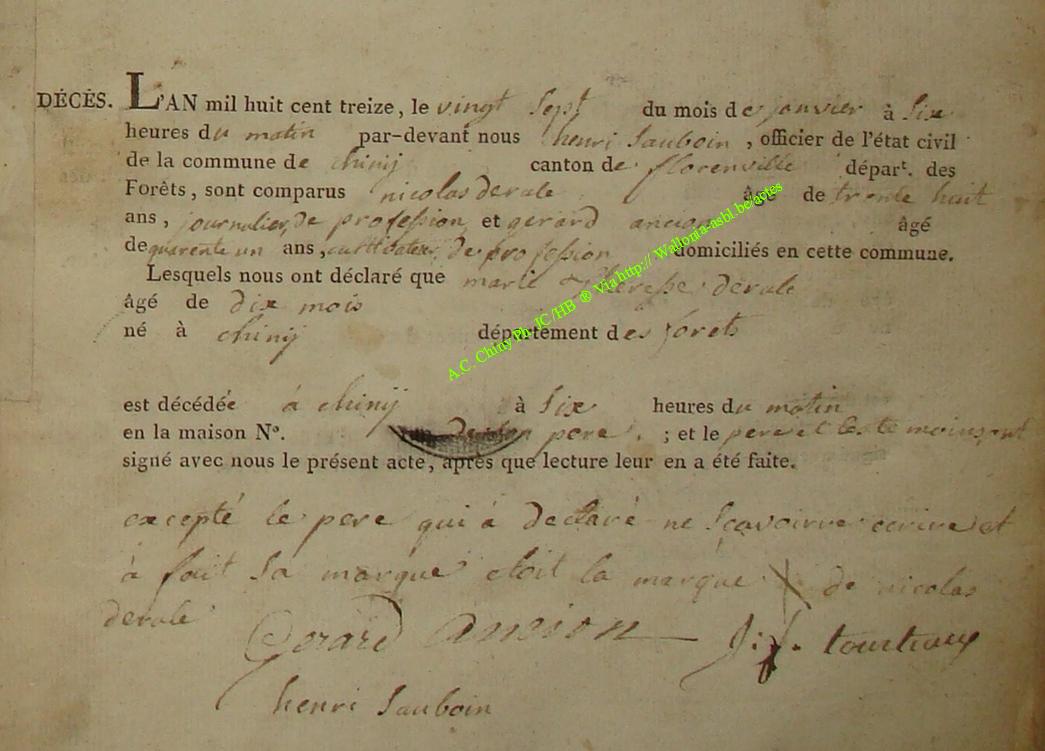 DÉCÈS. L'AN mil huit cent treize, le vingt sept du mois de janvier à six
heures du matin par-devant nous henri Sauboin, officier de l'état civil
de la commune de chinij canton de florenville départ. des
Forêts, sont comparus nicolas derale âgé de trente huit
ans, journalier, de profession, et gerard ancion âgé
de quarente un ans, cultivateur, de profession domiciliés en cette commune.
Lesquels nous ont déclaré que marie therese derale
âgé de dix mois
né à chinij département des forets
est décédée à chinij à six heures du matin
en la maison N°. de son pere. ; et le pere et les temoins ont
signé avec nous le présent acte, après que lecture leur en a été faite.
excepté le pere qui à declaré ne scavoir ecrire et
à fait sa marque etoit la marque X de nicolas
derale Gerard ancion J. J. tourteaux
henri Sauboin
A.C. Chiny Ph JC /HB ® Via http:// Wallonia-asbl.be/actes